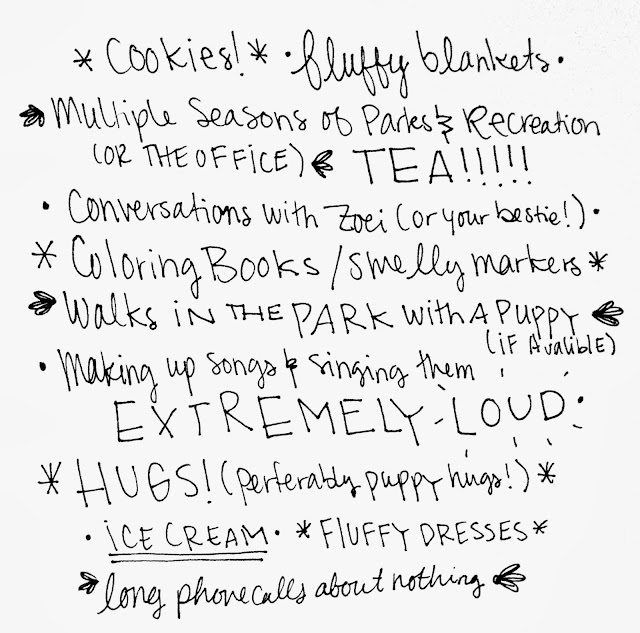 * Cookies! * • fluffy blankets •
Multiple Seasons of Parks & Recreation
(OR THE OFFICE) TEA!!!!!
• Conversations with Zoei (or your bestie!) •
* Coloring Books / smelly markers *
Walks in THE PARK with A Puppy
(iF AvaliblE)
• Making up songs & singing them
EXTREMELY LOUD •
* HUGS! (perferably puppy hugs!) *
• iCE CREAM • * FLUFFY DRESSES *
long phone calls about nothing